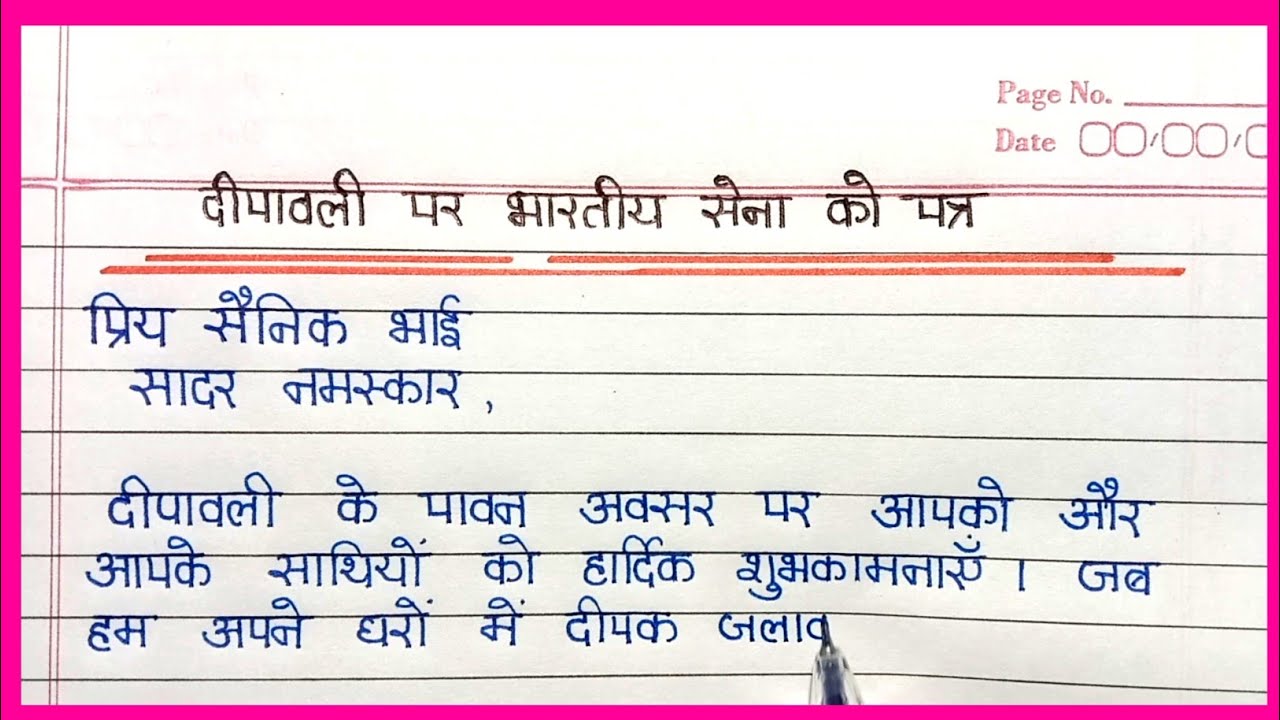 Page No.
Date
दीपावली पर भारतीय सेना को पत्र
प्रिय सैनिक भाई
सादर नमस्कार,
दीपावली के पावन अवसर पर आपको और
आपके साथियों को हार्दिक शुभकामनाएँ। जब
हम अपने घरों में दीपक जलाव